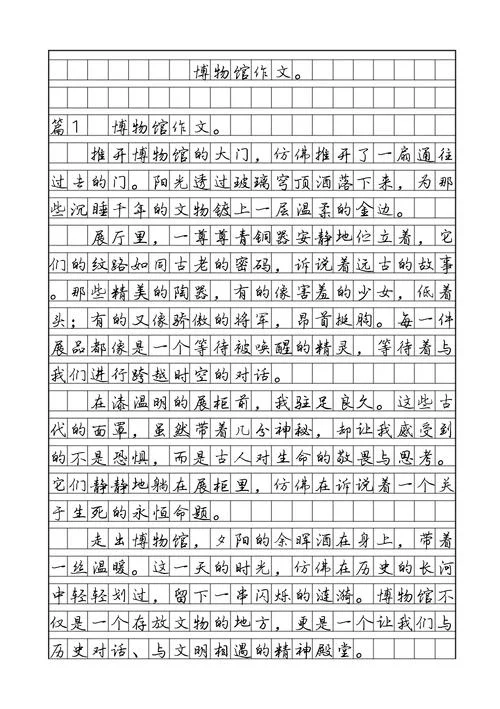 博物馆作文。
篇1 博物馆作文。
推开博物馆的大门，仿佛推开了一扇通往
过去的门。阳光透过玻璃穹顶洒落下来，为那
些沉睡千年的文物镀上一层温柔的金边。
展厅里，一尊尊青铜器安静地伫立着，它
们的纹路如同古老的密码，诉说着远古的故事
。那些精美的陶器，有的像害羞的少女，低着
头；有的又像骄傲的将军，昂首挺胸。每一件
展品都像是一个等待被唤醒的精灵，等待着与
我们进行跨越时空的对话。
在漆温明的展柜前，我驻足良久。这些古
代的面罩，虽然带着几分神秘，却让我感受到
的不是恐惧，而是古人对生命的敬畏与思考。
它们静静地躺在展柜里，仿佛在诉说着一个关
于生死的永恒命题。
走出博物馆，夕阳的余晖洒在身上，带着
一丝温暖。这一天的时光，仿佛在历史的长河
中轻轻划过，留下一串闪烁的涟漪。博物馆不
仅是一个存放文物的地方，更是一个让我们与
历史对话、与文明相遇的精神殿堂。